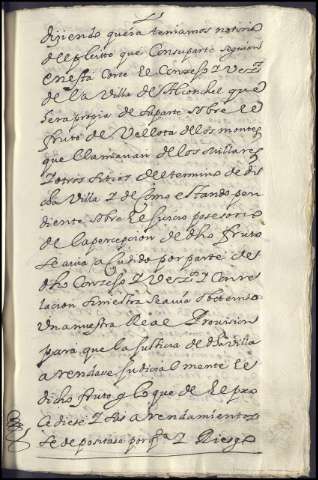 dijiendo que ya teniamos noticia
del pleitto que con su parte seguian
en esta corte el Conzejo y Vezos
de la Villa de que
era propia de su parte sobre el
fruto de Vellota de los montes
que llamavan de los Millares
y otros sitios del termino de di
cha Villa y de como estando pen
diente sobre el juicio posesorio
de la percepcion de dho fruto
se avia acudido por parte del
dho Conzejo y Vezos y con re
lacion siniestra se avia obtenido
una nuestra Real Provision
para que la justicia de dha villa
arendase judicialmente el
dicho fruto y lo que de el pro
cediese y sus arendamientos
se depositase por qta y Riesgo